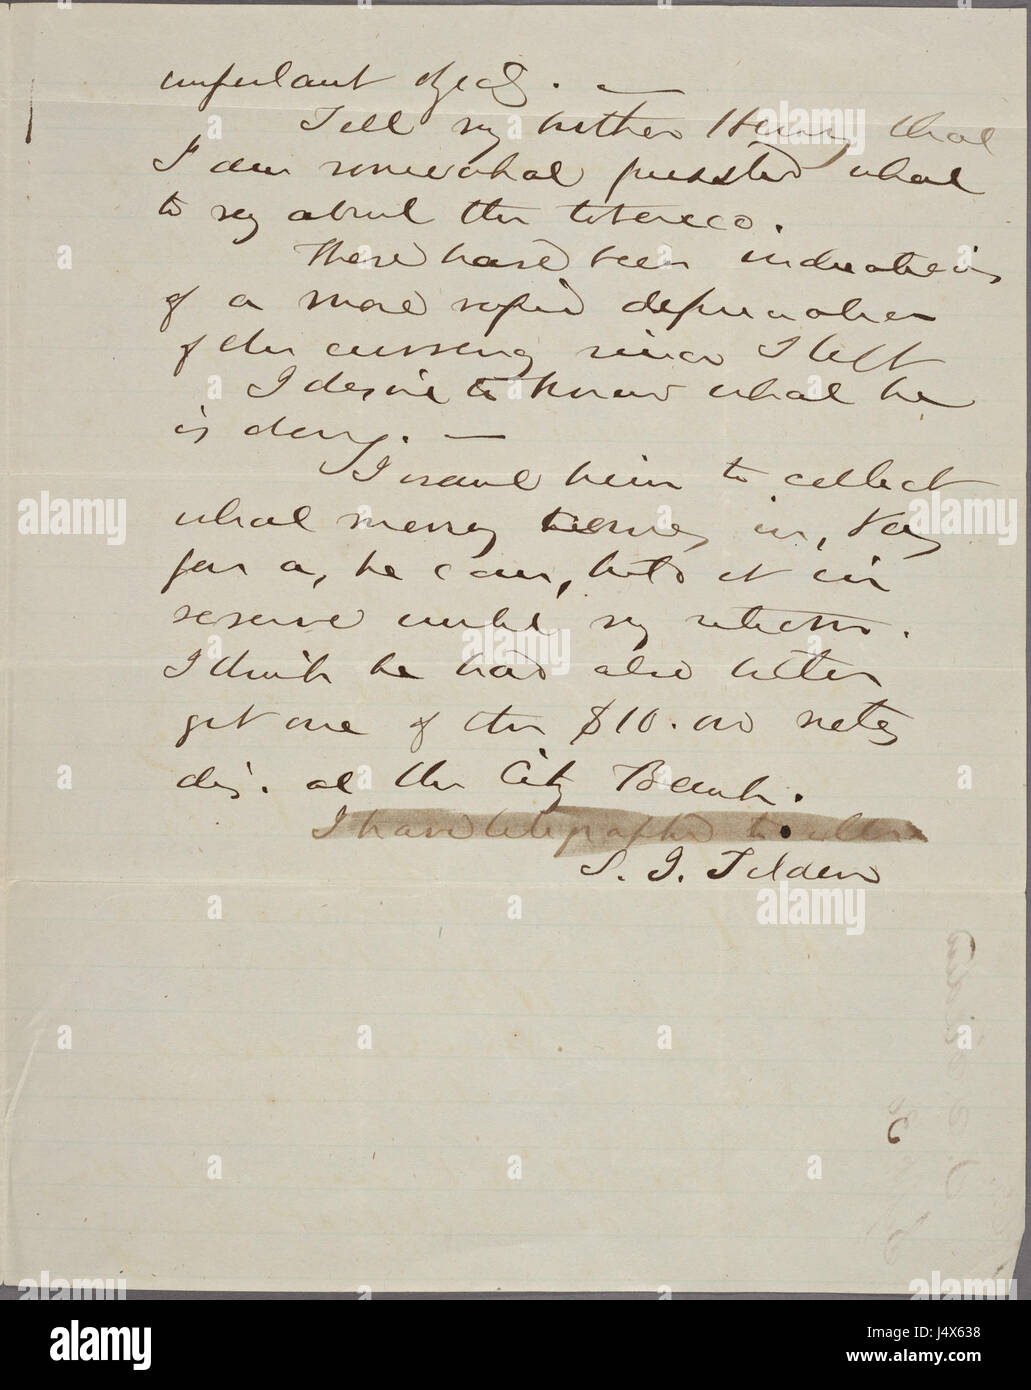 important object. —
Tell my brother Henry that
I am somewhat puzzled what
to say about the tobacco.
There have been indications
of a more rapid depreciation
of the currency since I left
I desire to know what he
is doing. —
I want him to collect
what money in,
for a, he can, hold it in
reserve until my return.
I think he had also better
get one of the $10.000 notes
dis. at the City Bank.
I have telegraphed to
S. J. Tilden
alamy
Image ID: J4X638
www.alamy.com